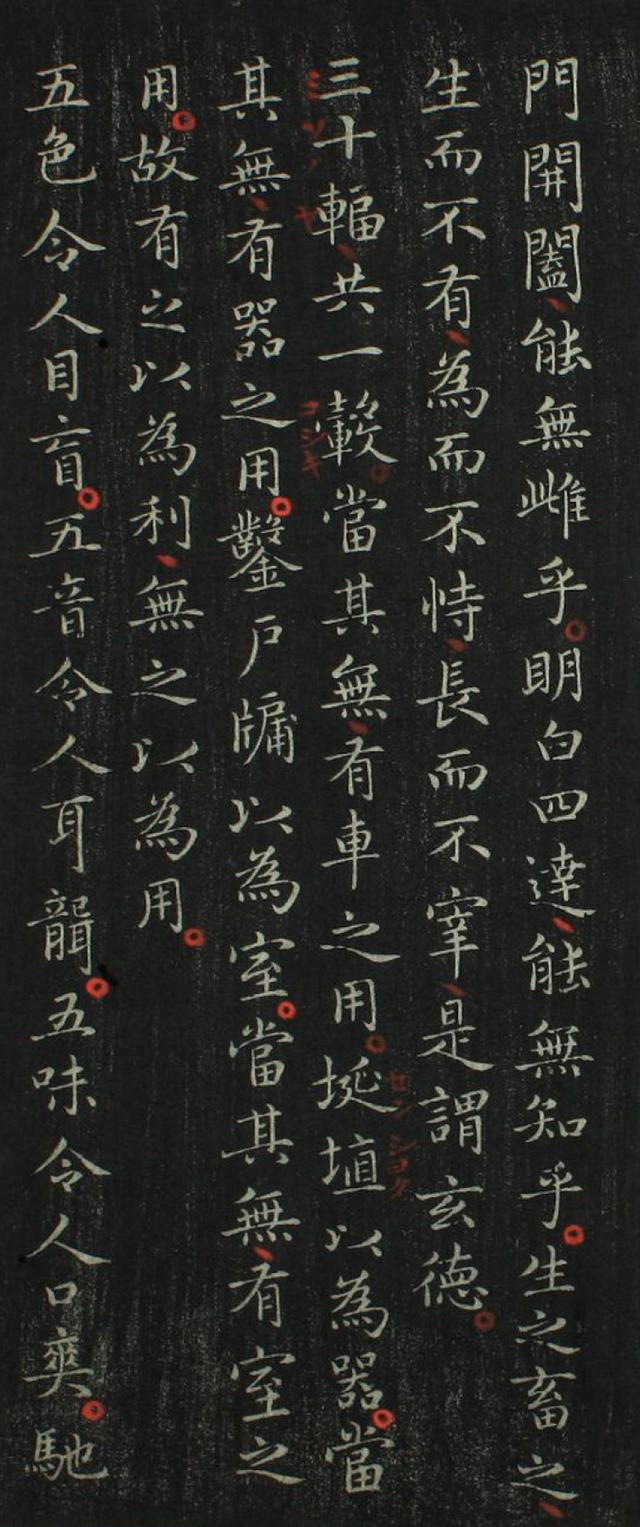 門開闔能無雌乎明白四達能無知乎生之畜之
生而不有為而不恃長而不宰是謂玄德
三十輻共一轂當其無有車之用埏埴以為器當
其無有器之用鑿戶牖以為室當其無有室之
用故有之以為利無之以為用
五色令人目盲五音令人耳聾五味令人口爽馳